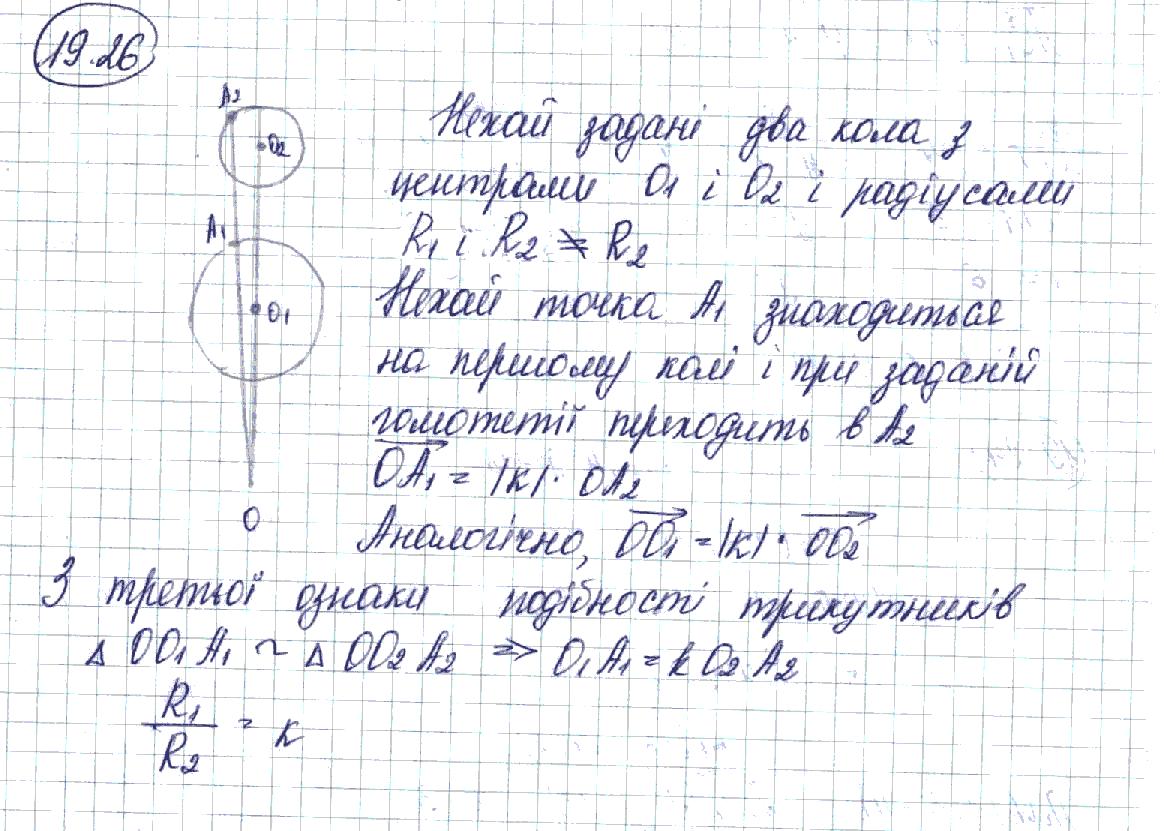 19.26
A2
O2
A1
O1
O
Нехай задані два кола з
центрами O1 і O2 і радіусами
R1 і R2 ≠ R2
Нехай точка A1 знаходиться
на першому колі і при заданій
гомотетії переходить в A2
OA1 = |k| · OA2
Аналогічно, OO1 = |k| · OO2
З третьої ознаки подібності трикутників
Δ OO1A1 ~ Δ OO2A2 => O1A1 = k O2A2
R1/R2 = k